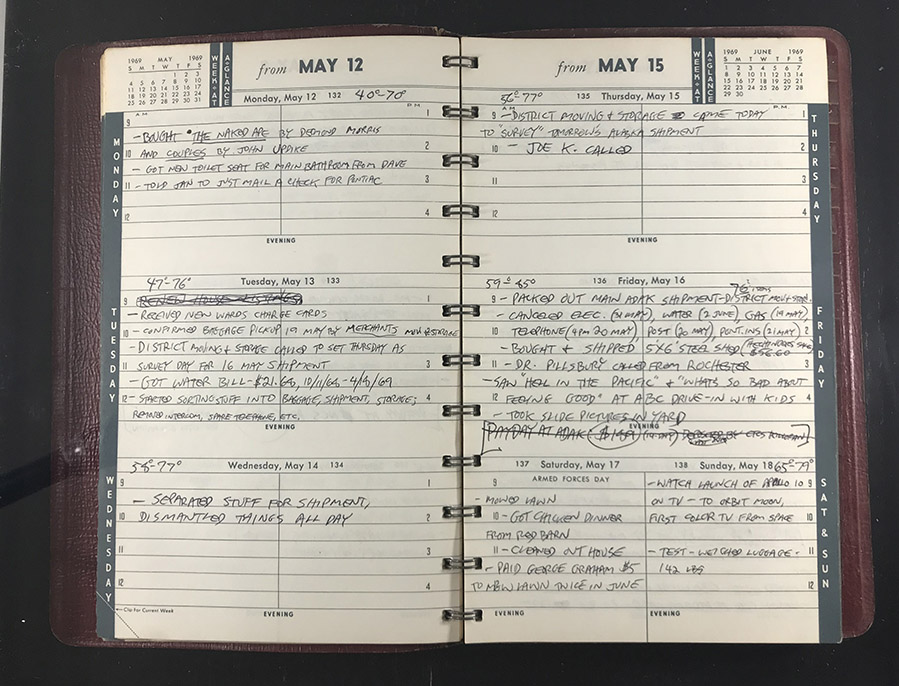 1969 MAY 1969
S M T W T F S
1 2 3
4 5 6 7 8 9 10
11 12 13 14 15 16 17
18 19 20 21 22 23 24
25 26 27 28 29 30 31
WEEK-AT A-GLANCE
from MAY 12
Monday, May 12 132 40°-70°
A M P M
MONDAY
9 1
- BOUGHT "THE NAKED APE BY DESMOND MORRIS
10 AND COUPLES BY JOHN UPDIKE 2
- GOT NEW TOILET SEAT FOR MAIN BATHROOM FROM DAVE
11 - TOLD JAN TO JUST MAIL A CHECK FOR PONTIAC 3
12 4
EVENING
47°-76° Tuesday, May 13 133
TUESDAY
9 RENEW HOUSE 1
- RECEIVED NEW WARDS CHARGE CARDS
10 - CONFIRMED BAGGAGE PICKUP 19 MAY BY MERCHANTS MOV & STORAGE
- DISTRICT MOVING & STORAGE CALLED TO SET THURSDAY AS
11 SURVEY DAY FOR 16 MAY SHIPMENT 3
- GOT WATER BILL - $21.68, 10/11/68 - 4/9/69
12 - STARTED SORTING STUFF INTO BAGGAGE, SHIPMENT, STORAGE; 4
INTERCOM, SPARE TELEPHONE, ETC.
EVENING
58°-77° Wednesday, May 14 134
WEDNESDAY
9 1
- SEPARATED STUFF FOR SHIPMENT,
10 DISMANTLED THINGS ALL DAY 2
11 3
12 4
←Clip For Current Week
EVENING
from MAY 15
WEEK-AT A-GLANCE
1969 JUNE 1969
S M T W T F S
1 2 3 4 5 6 7
8 9 10 11 12 13 14
15 16 17 18 19 20 21
22 23 24 25 26 27 28
29 30
56°-77° 135 Thursday, May 15
A M P M
THURSDAY
9 - DISTRICT MOVING & STORAGE CAME TODAY 1
TO "SURVEY" TOMORROW'S ALASKA SHIPMENT
10 - JOE K. CALLED 2
11 3
12 4
EVENING
59°-85° 136 Friday, May 16
76 ITEMS
FRIDAY
9 - PACKED OUT MAIN ADAK SHIPMENT - DISTRICT MOV & STOR.
- CANCELED ELEC. (21 MAY), WATER (2 JUNE), GAS (19 MAY)
10 TELEPHONE (4PM 20 MAY), POST (20 MAY), PENT. INS (21 MAY) 2
- BOUGHT & SHIPPED 5X6' STEEL SHED $56.60
11 - DR. PILLSBURY CALLED FROM ROCHESTER 3
- SAW "HELL IN THE PACIFIC" & "WHATS SO BAD ABOUT
12 FEELING GOOD" AT ABC DRIVE-IN WITH KIDS 4
- TOOK SLIDE PICTURES IN YARD
EVENING
[PAYDAY AT ADAK:
137 Saturday, May 17
ARMED FORCES DAY
9
- MOWED LAWN
10 - GOT CHICKEN DINNER
FROM RED BARN
11 - CLEANED OUT HOUSE
- PAID GEORGE GRAHAM $5
TO MOW LAWN TWICE IN JUNE
EVENING
138 Sunday, May 18 65°-79°
SAT & SUN
- WATCH LAUNCH OF APOLLO 10 9
ON TV - TO ORBIT MOON,
FIRST COLOR TV FROM SPACE 10
- TEST - WEIGHED LUGGAGE - 11
142 LBS
12
EVENING